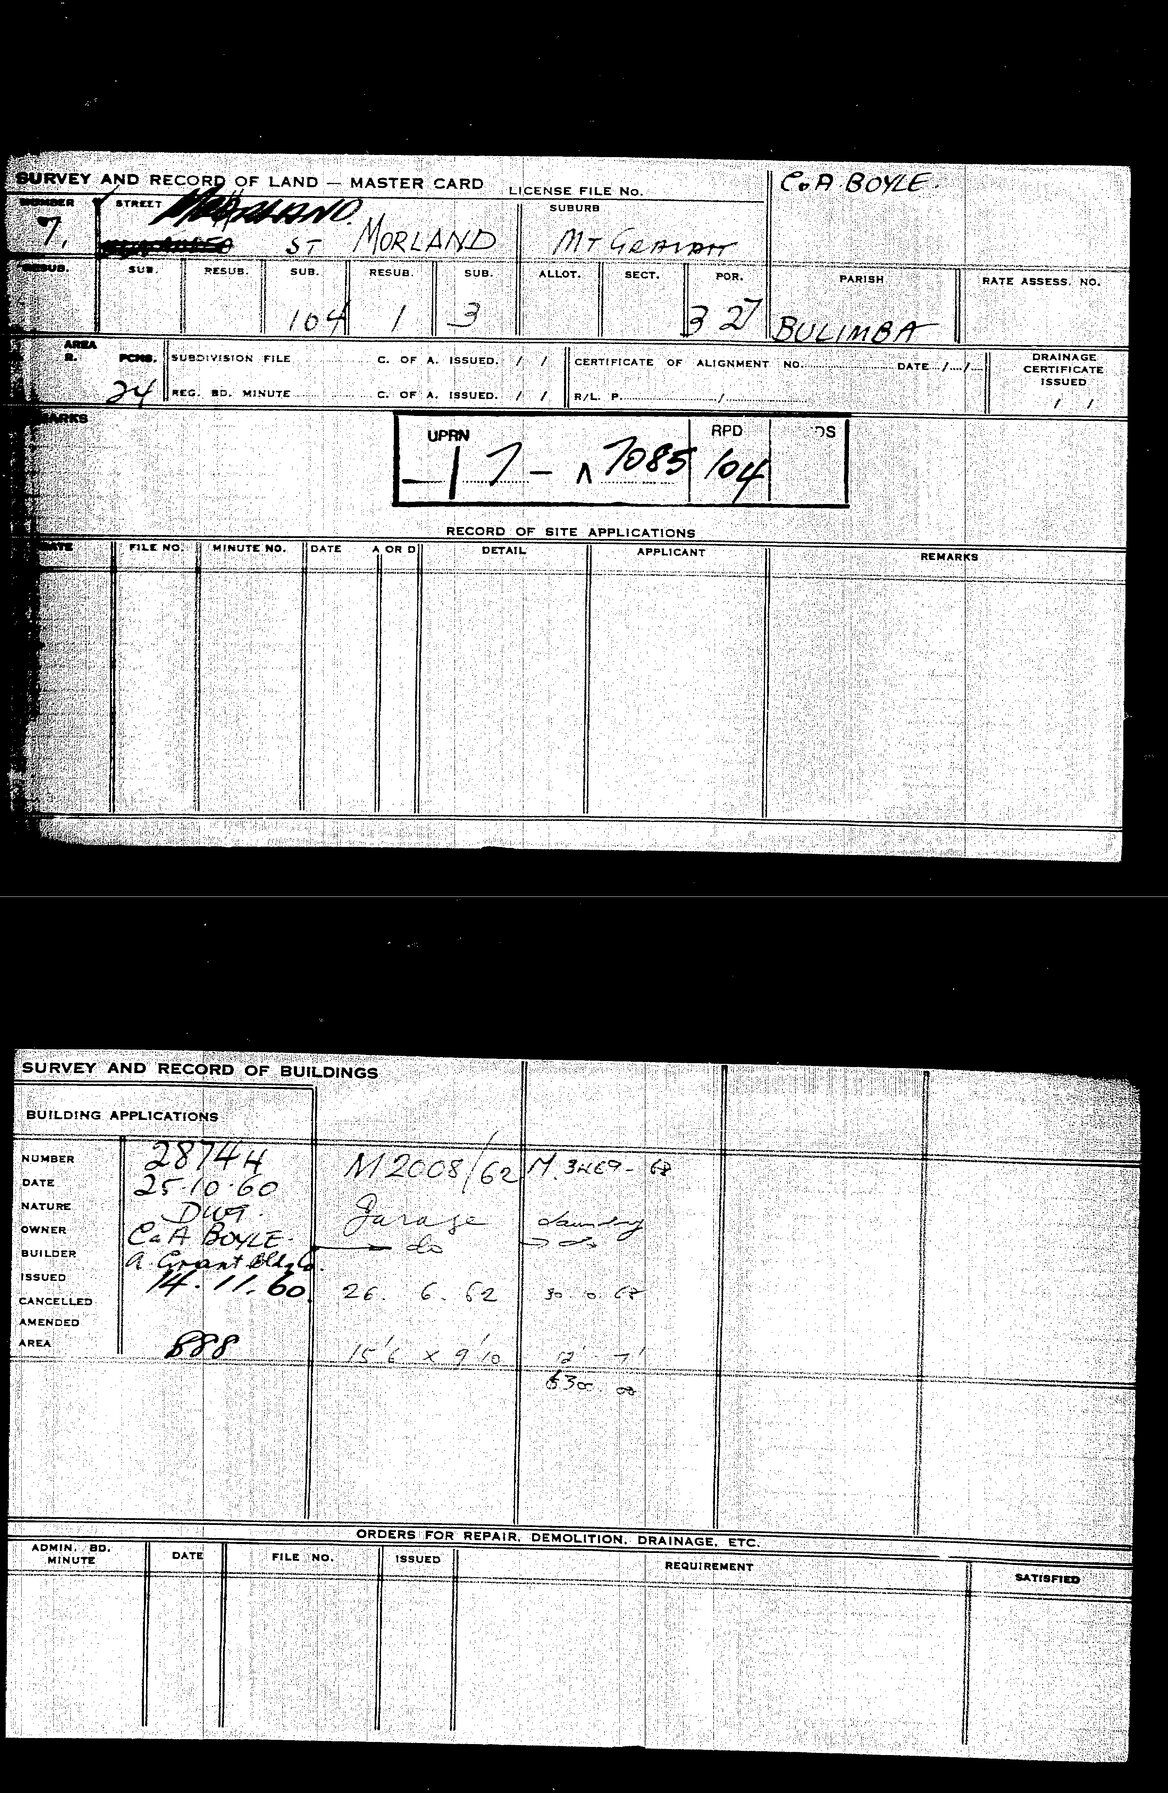 SURVEY AND RECORD OF LAND — MASTER CARD
LICENSE FILE No.
C & A BOYLE.
NUMBER STREET SUBURB
7. ST MORLAND MT GRAVATT
RESUB. SUB. RESUB. SUB. RESUB. SUB. ALLOT. SECT. POR. PARISH RATE ASSESS. NO.
104 1 3 327 BULIMBA
AREA
R. PCHS.
24
SUBDIVISION FILE C. OF A. ISSUED. / / CERTIFICATE OF ALIGNMENT NO. DATE / /
REG. BD. MINUTE C. OF A. ISSUED. / / R/L. P. /
DRAINAGE
CERTIFICATE
ISSUED
/ /
REMARKS
UPRN RPD
17 - 7085 104
RECORD OF SITE APPLICATIONS
DATE FILE NO. MINUTE NO. DATE A OR D DETAIL APPLICANT REMARKS
SURVEY AND RECORD OF BUILDINGS
BUILDING APPLICATIONS
NUMBER 28744 M2008/62
DATE 25.10.60
NATURE Dwg. Garage Laundry
OWNER C & A BOYLE. do do
BUILDER A. Grant Bldg Co.
ISSUED 14.11.60 26. 6. 62
CANCELLED
AMENDED
AREA 888 15'6 x 9'10 12' 7'
ORDERS FOR REPAIR, DEMOLITION, DRAINAGE, ETC.
ADMIN. BD.
MINUTE DATE FILE NO. ISSUED REQUIREMENT SATISFIED